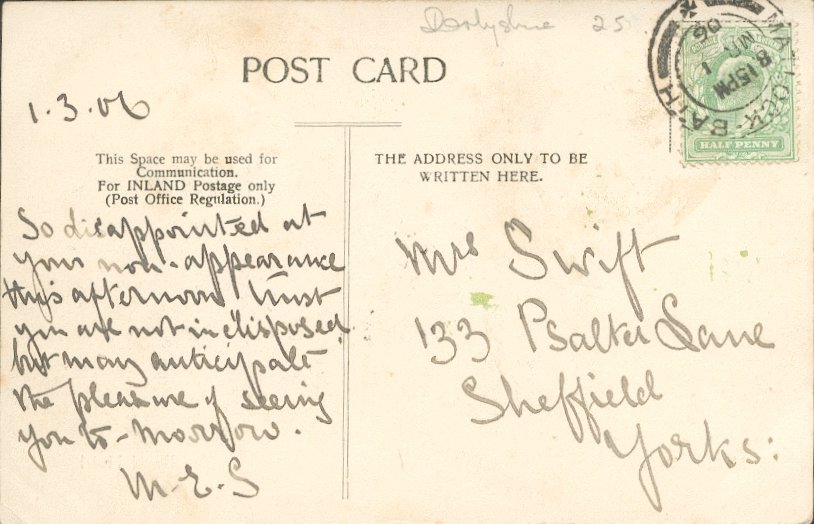 Derbyshire 25
POST CARD
MATLOCK-BATH
8 15 PM
MR 1
06
HALF PENNY
1.3.06
This Space may be used for
Communication.
For INLAND Postage only
(Post Office Regulation.)
THE ADDRESS ONLY TO BE
WRITTEN HERE.
So disappointed at
your non-appearance
this afternoon trust
you are not indisposed
but may anticipate
the pleasure of seeing
you to-morrow.
M.E.S
Mrs Swift
133 Psalter Lane
Sheffield
Yorks: